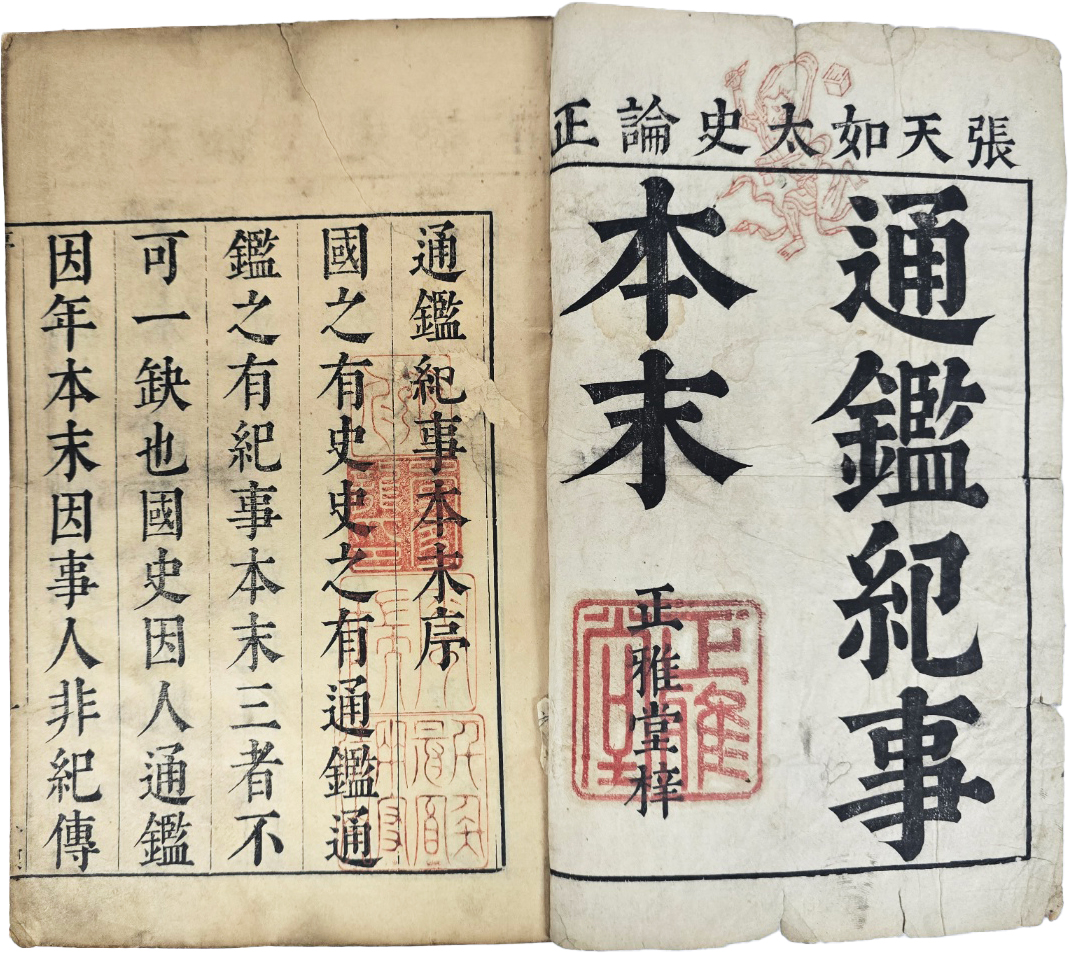 張天如太史論正
通鑑紀事
本末
正雅堂梓
正雅堂
通鑑紀事本末序
國之有史史之有通鑑通
鑑之有紀事本末三者不
可一缺也國史因人通鑑
因年本末因事人非紀傳